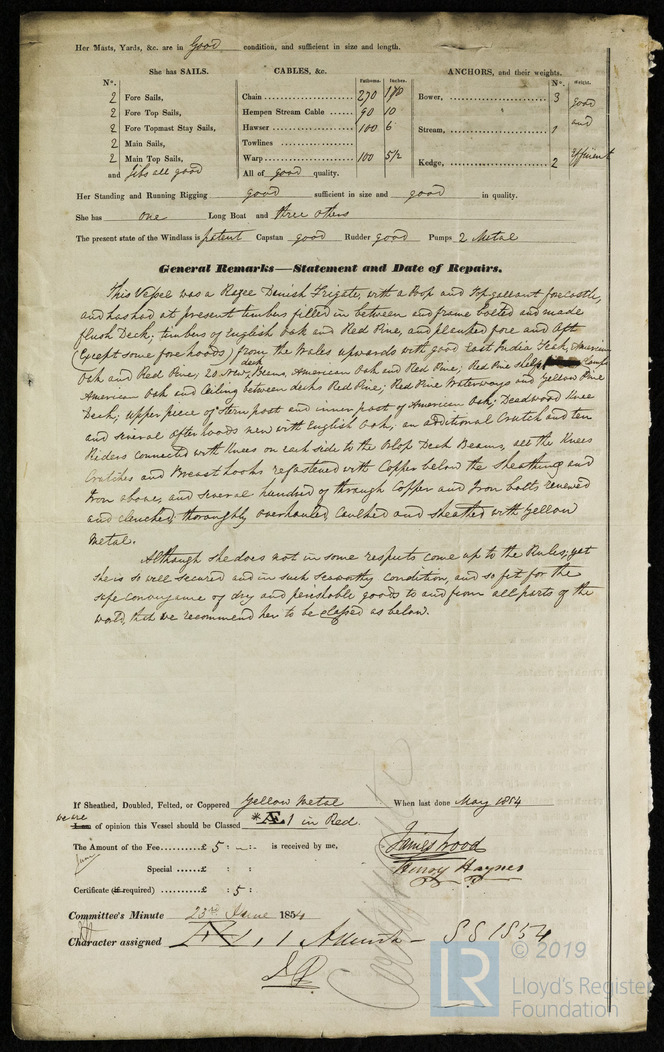 Her Masts, Yards, &c. are in Good condition, and sufficient in size and length.
She has SAILS.
CABLES, &c.
Fathoms. Inches.
ANCHORS, and their weights.
N°. Weight.
N°.
2 Fore Sails,
2 Fore Top Sails,
2 Fore Topmast Stay Sails,
2 Main Sails,
2 Main Top Sails,
and Jibs all good
Chain 270
Hempen Stream Cable 90 10
Hawser 100 6
Towlines
Warp 100 5½
All of good quality.
Bower, 3 good
Stream, 1 and
Kedge, 2 efficient
Her Standing and Running Rigging good sufficient in size and good in quality.
She has one Long Boat and three others
The present state of the Windlass is patent Capstan good Rudder good Pumps 2 Metal
General Remarks—Statement and Date of Repairs.
This Vessel was a Razee Danish Frigate, with a Poop and Topgallant forecastle,
and has had at present timbers filled in between and frame bolted and made
flush Deck; timbers of English Oak and Red Pine, and planked fore and Aft
(Except some fore hoods) from the Wales upwards with good East India Teak, American
Oak and Red Pine; 20 new deck Beams, American Oak and Red Pine; Red Pine shelf Clamps
American Oak and Ceiling between decks Red Pine; Red Pine Waterways and Yellow Pine
Deck; upper piece of Stern post and inner post of American Oak; Deadwood Knee
and several after hoods new with English Oak; an additional Crutch and ten
Riders connected with Knees on each side to the Orlop Deck Beams, all the Knees
Crutches and Breasthooks refastened with Copper below the Sheathing and
Iron above, and several hundred of through Copper and Iron bolts renewed
and clenched, thoroughly overhauled Caulked and sheathed with Yellow
Metal.
Although she does not in some respects come up to the Rules, yet
she is so well secured and in such seaworthy condition, and so fit for the
safe conveyance of dry and perishable goods to and from all parts of the
world, that we recommend her to be classed as below.
If Sheathed, Doubled, Felted, or Coppered Yellow Metal When last done May 1854
we are
I am of opinion this Vessel should be Classed *Æ 1 in Red.
The Amount of the Fee......£ 5 : - : - is received by me,
Special ......£ : :
Certificate (if required) ......£ : 5 :
James Wood
Henry Haynes
Committee's Minute 23rd June 1854
Character assigned Æ 1 SS 1854
© 2019
LR
Lloyd's Register
Foundation